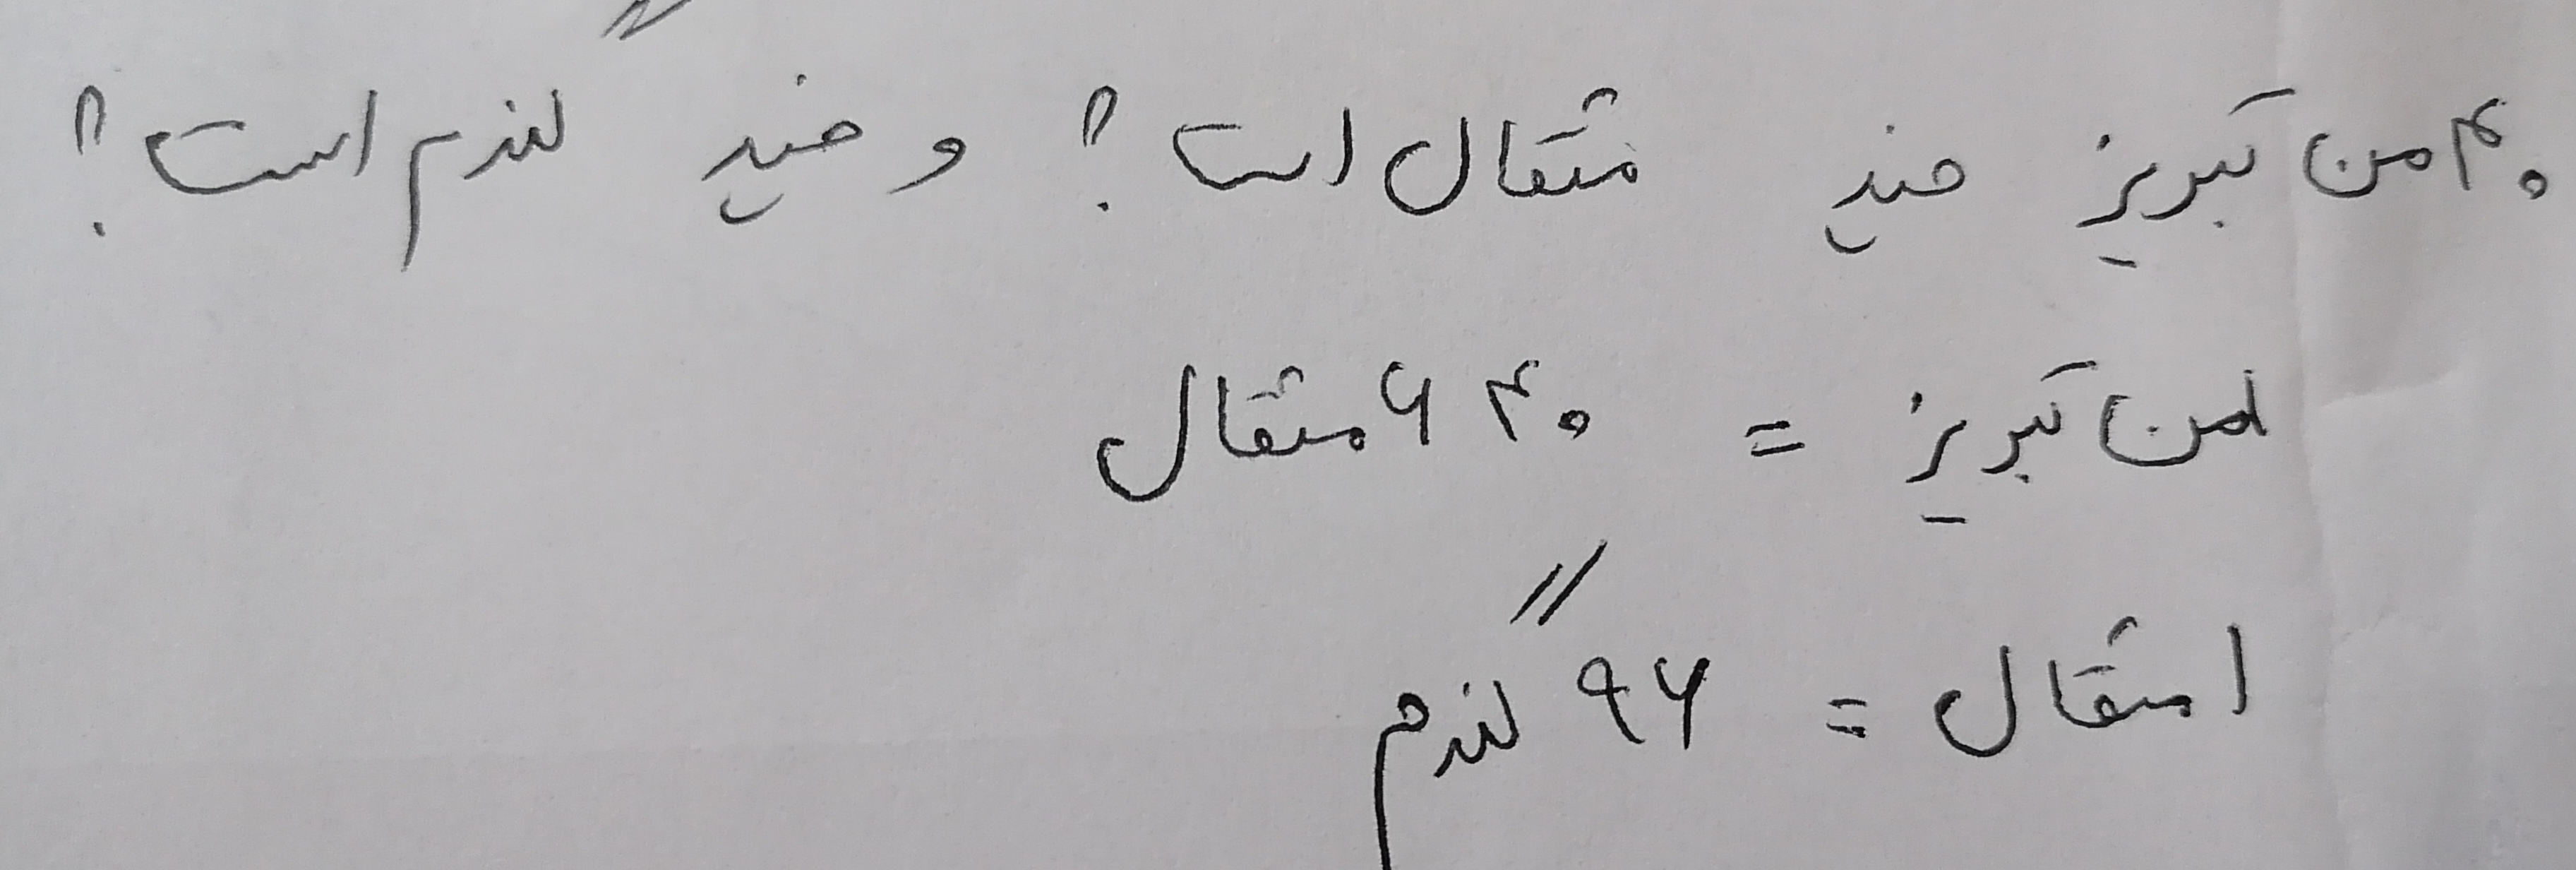 ۴۰ من تبریز چند مثقال است؟ و چند گندم است؟
۱ من تبریز = ۶۴۰ مثقال
۱ مثقال = ۹۶ گندم